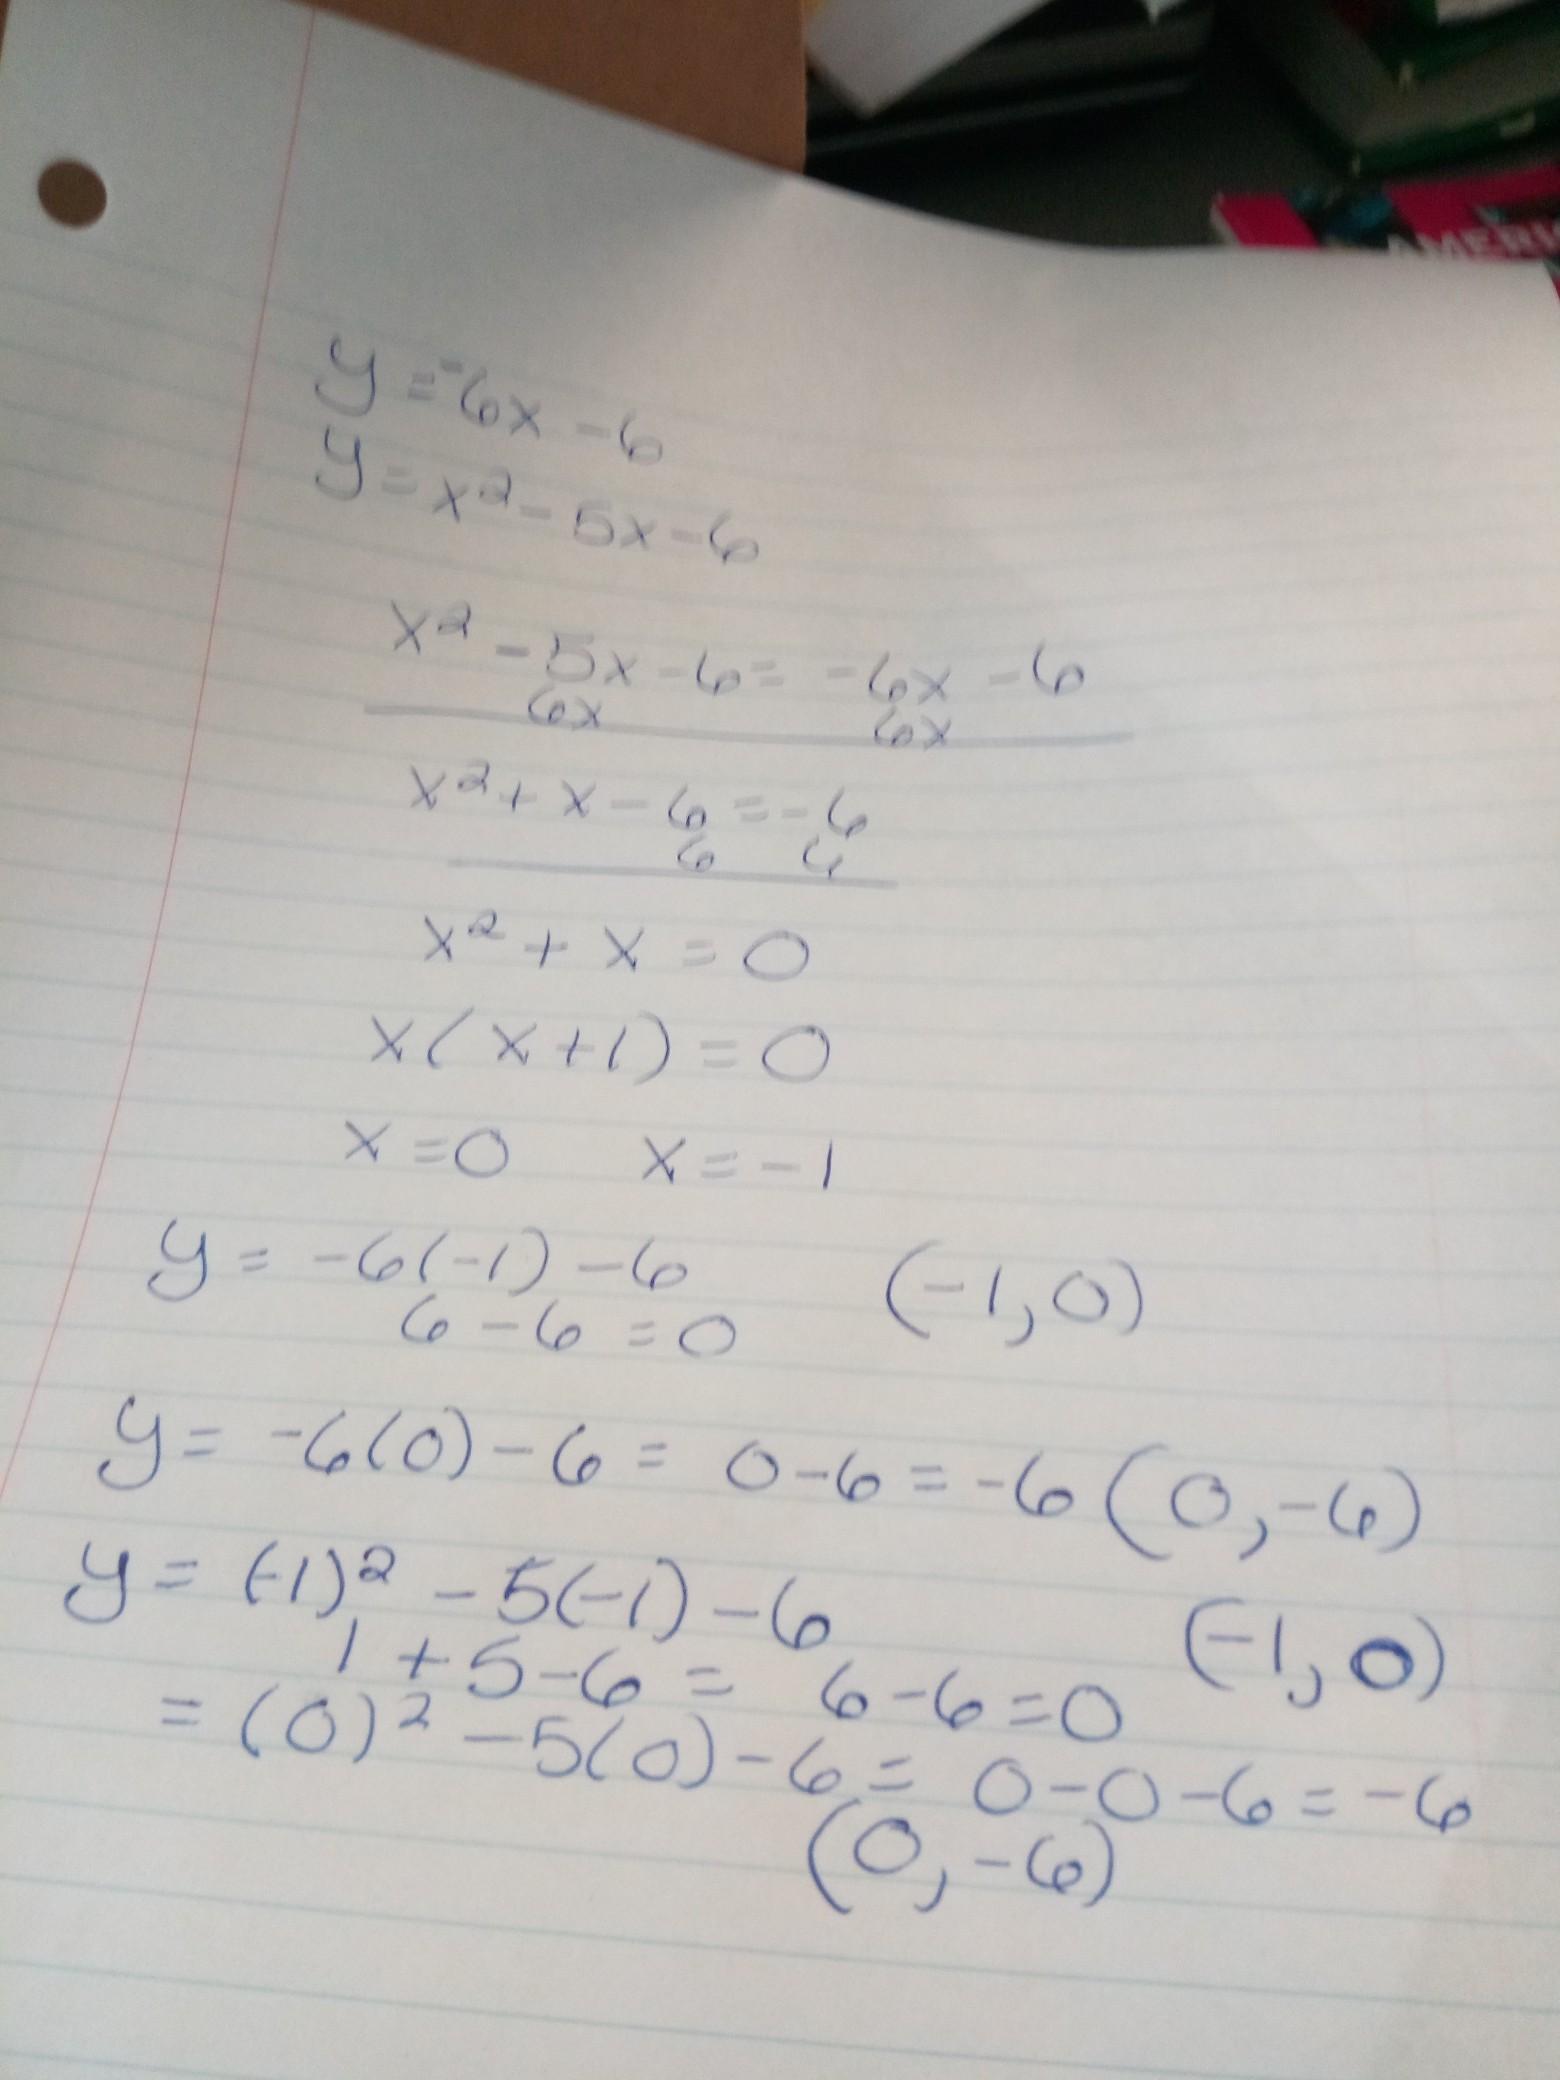 AMERI
y = -6x - 6
y = x² - 5x - 6
x² - 5x - 6 = -6x - 6
6x 6x
x² + x - 6 = -6
6 6
x² + x = 0
x(x+1) = 0
x = 0 x = -1
y = -6(-1) - 6 (-1,0)
6 - 6 = 0
y = -6(0) - 6 = 0 - 6 = -6 (0,-6)
y = (-1)² - 5(-1) - 6 (-1,0)
1 + 5 - 6 = 6 - 6 = 0
= (0)² - 5(0) - 6 = 0 - 0 - 6 = -6
(0,-6)